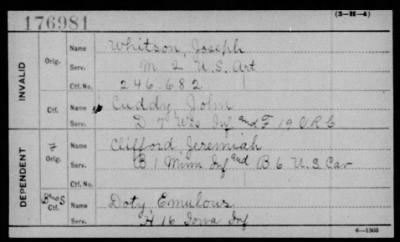 176981
(3-H-4)
INVALID
Orig.
Name Whitson, Joseph
Serv. M 2 U.S. Art
Ctf. No. 246.682
Ctf.
Name Cuddy John
Serv. D 7 Wis Inf and F 19 VRC
DEPENDENT
Orig.
Name Clifford, Jeremiah
Serv. B 1 Minn Inf and B 6 U S Cav
Ctf. No.
Ctf.
Name Doty Emulous
Serv. H 16 Iowa Inf